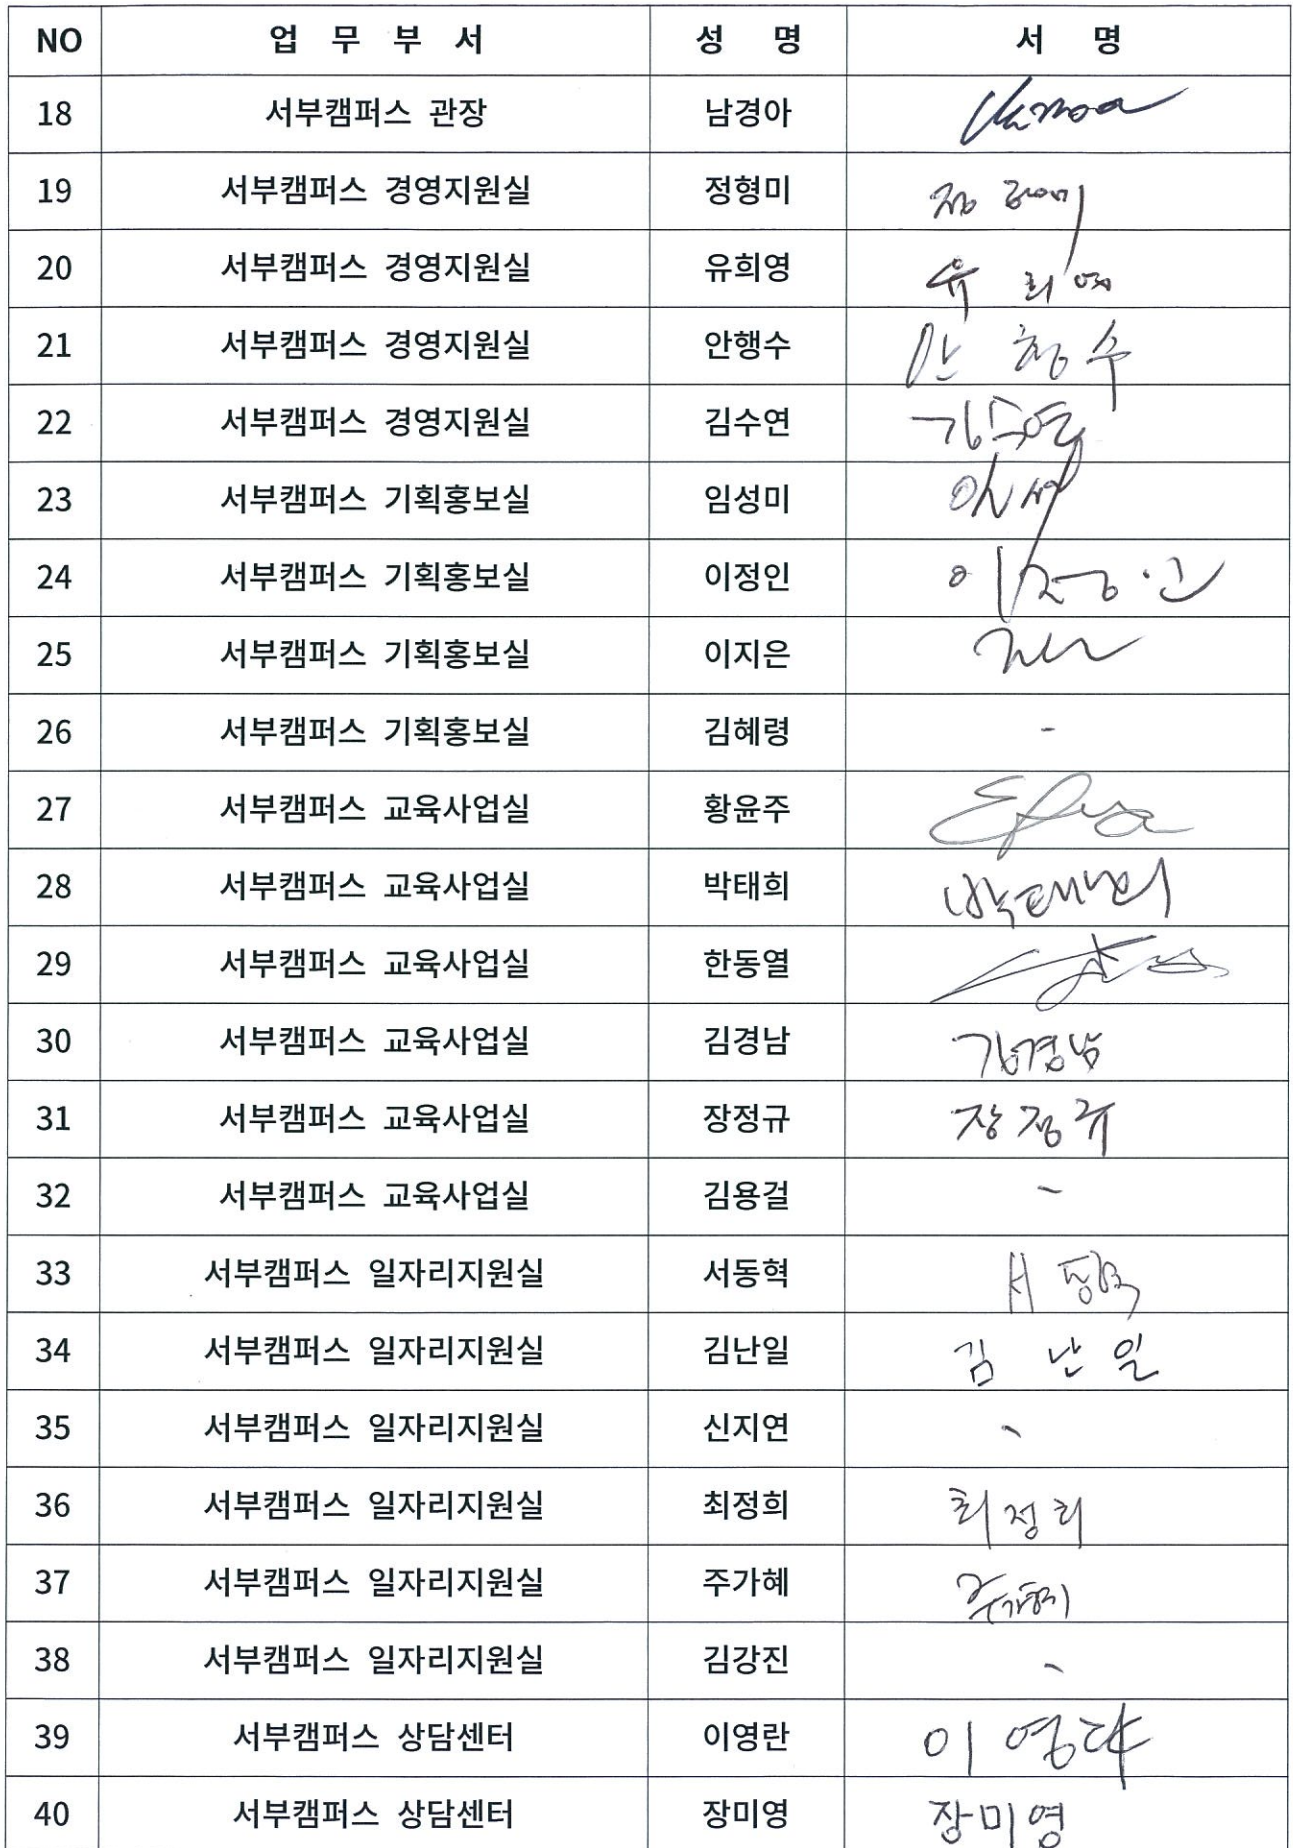 NO 업 무 부 서 성 명 서 명
18 서부캠퍼스 관장 남경아
19 서부캠퍼스 경영지원실 정형미 정형미
20 서부캠퍼스 경영지원실 유희영 유희영
21 서부캠퍼스 경영지원실 안행수 안행수
22 서부캠퍼스 경영지원실 김수연 김수연
23 서부캠퍼스 기획홍보실 임성미
24 서부캠퍼스 기획홍보실 이정인 이정인
25 서부캠퍼스 기획홍보실 이지은
26 서부캠퍼스 기획홍보실 김혜령 -
27 서부캠퍼스 교육사업실 황윤주
28 서부캠퍼스 교육사업실 박태희 박태희
29 서부캠퍼스 교육사업실 한동열
30 서부캠퍼스 교육사업실 김경남 김경남
31 서부캠퍼스 교육사업실 장정규 장정규
32 서부캠퍼스 교육사업실 김용걸 -
33 서부캠퍼스 일자리지원실 서동혁 서동혁
34 서부캠퍼스 일자리지원실 김난일 김 난 일
35 서부캠퍼스 일자리지원실 신지연 -
36 서부캠퍼스 일자리지원실 최정희 최정희
37 서부캠퍼스 일자리지원실 주가혜 주가혜
38 서부캠퍼스 일자리지원실 김강진 -
39 서부캠퍼스 상담센터 이영란 이영란
40 서부캠퍼스 상담센터 장미영 장미영